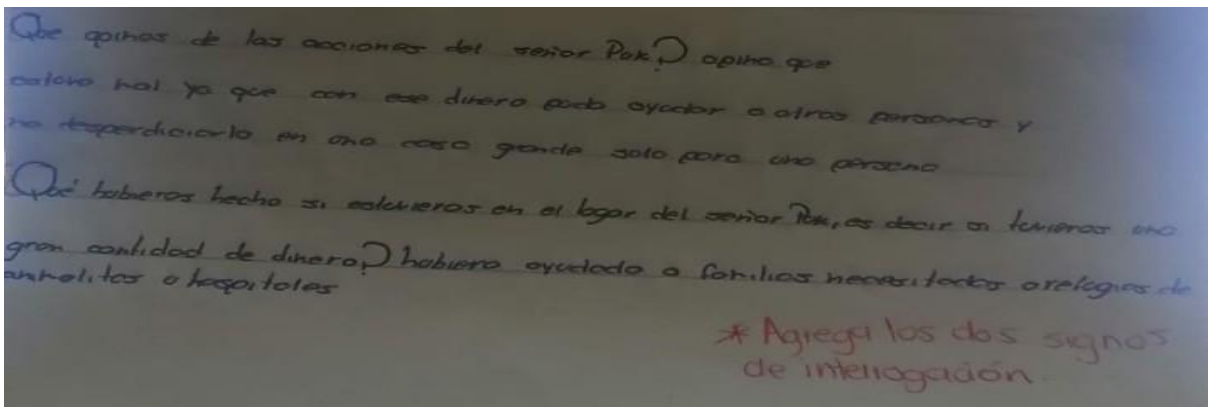 Que opinas de las acciones del señor Pok? opino que
estuvo mal ya que con ese dinero pudo ayudar a otras personas y
no desperdiciarlo en una casa grande solo para una persona
Qué hubieras hecho si estuvieras en el lugar del señor Pok, es decir si tuvieras una
gran cantidad de dinero? hubiera ayudado a familias necesitadas o refugios de
animalitos o hospitales
* Agrega los dos signos
de interrogación.